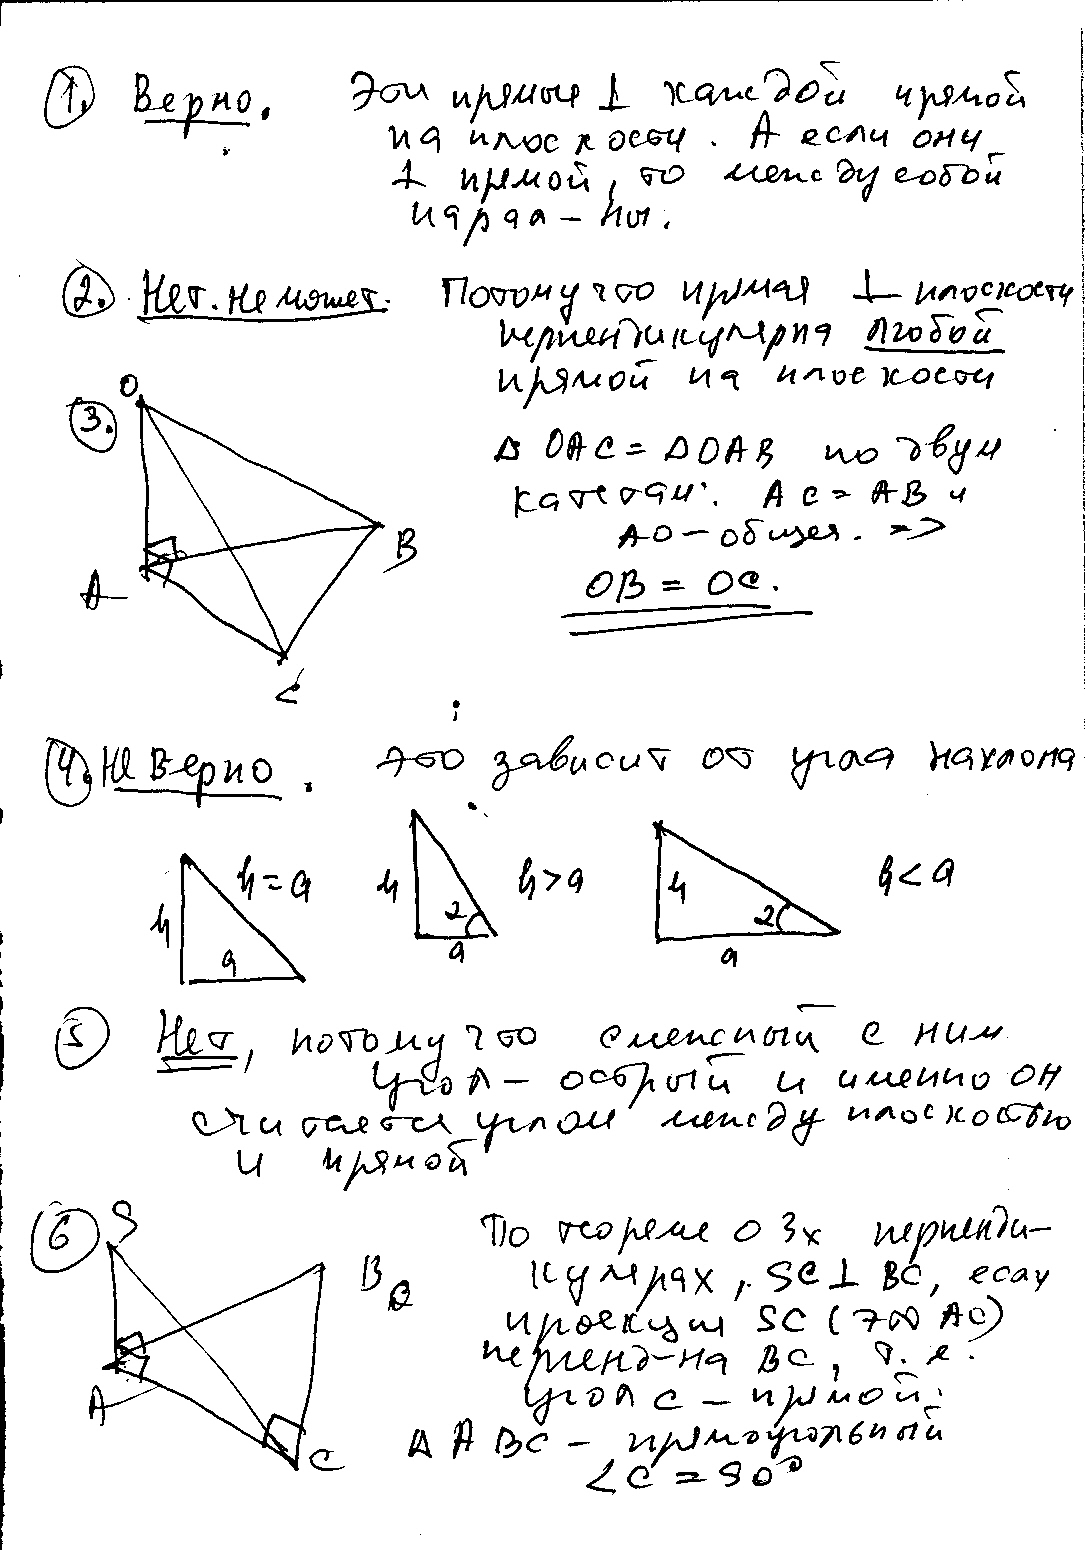 1. Верно. Эти прямые ⊥ каждой прямой
на плоскости. А если они
⊥ прямой, то между собой
парал-ны.
2. Нет. Не может. Потому что прямая ⊥ плоскости
перпендикулярна любой
прямой на плоскости
3.
O
A
B
C
Δ OAC = Δ OAB по двум
катетам. AC = AB и
AO – общая. =>
OB = OC.
4. Не верно. Это зависит от угла наклона
h
a
h = a
h
2
a
h > a
h
2
a
h < a
5 Нет, потому что смежный с ним
угол – острый и именно он
считается углом между плоскостью
и прямой
6
S
A
B
C
По теореме о 3х перпенди-
кулярах, SC ⊥ BC, если
проекция SC (это AC)
перпенд-на BC, т.е.
угол C – прямой.
Δ ABC – прямоугольный
∠C = 90°